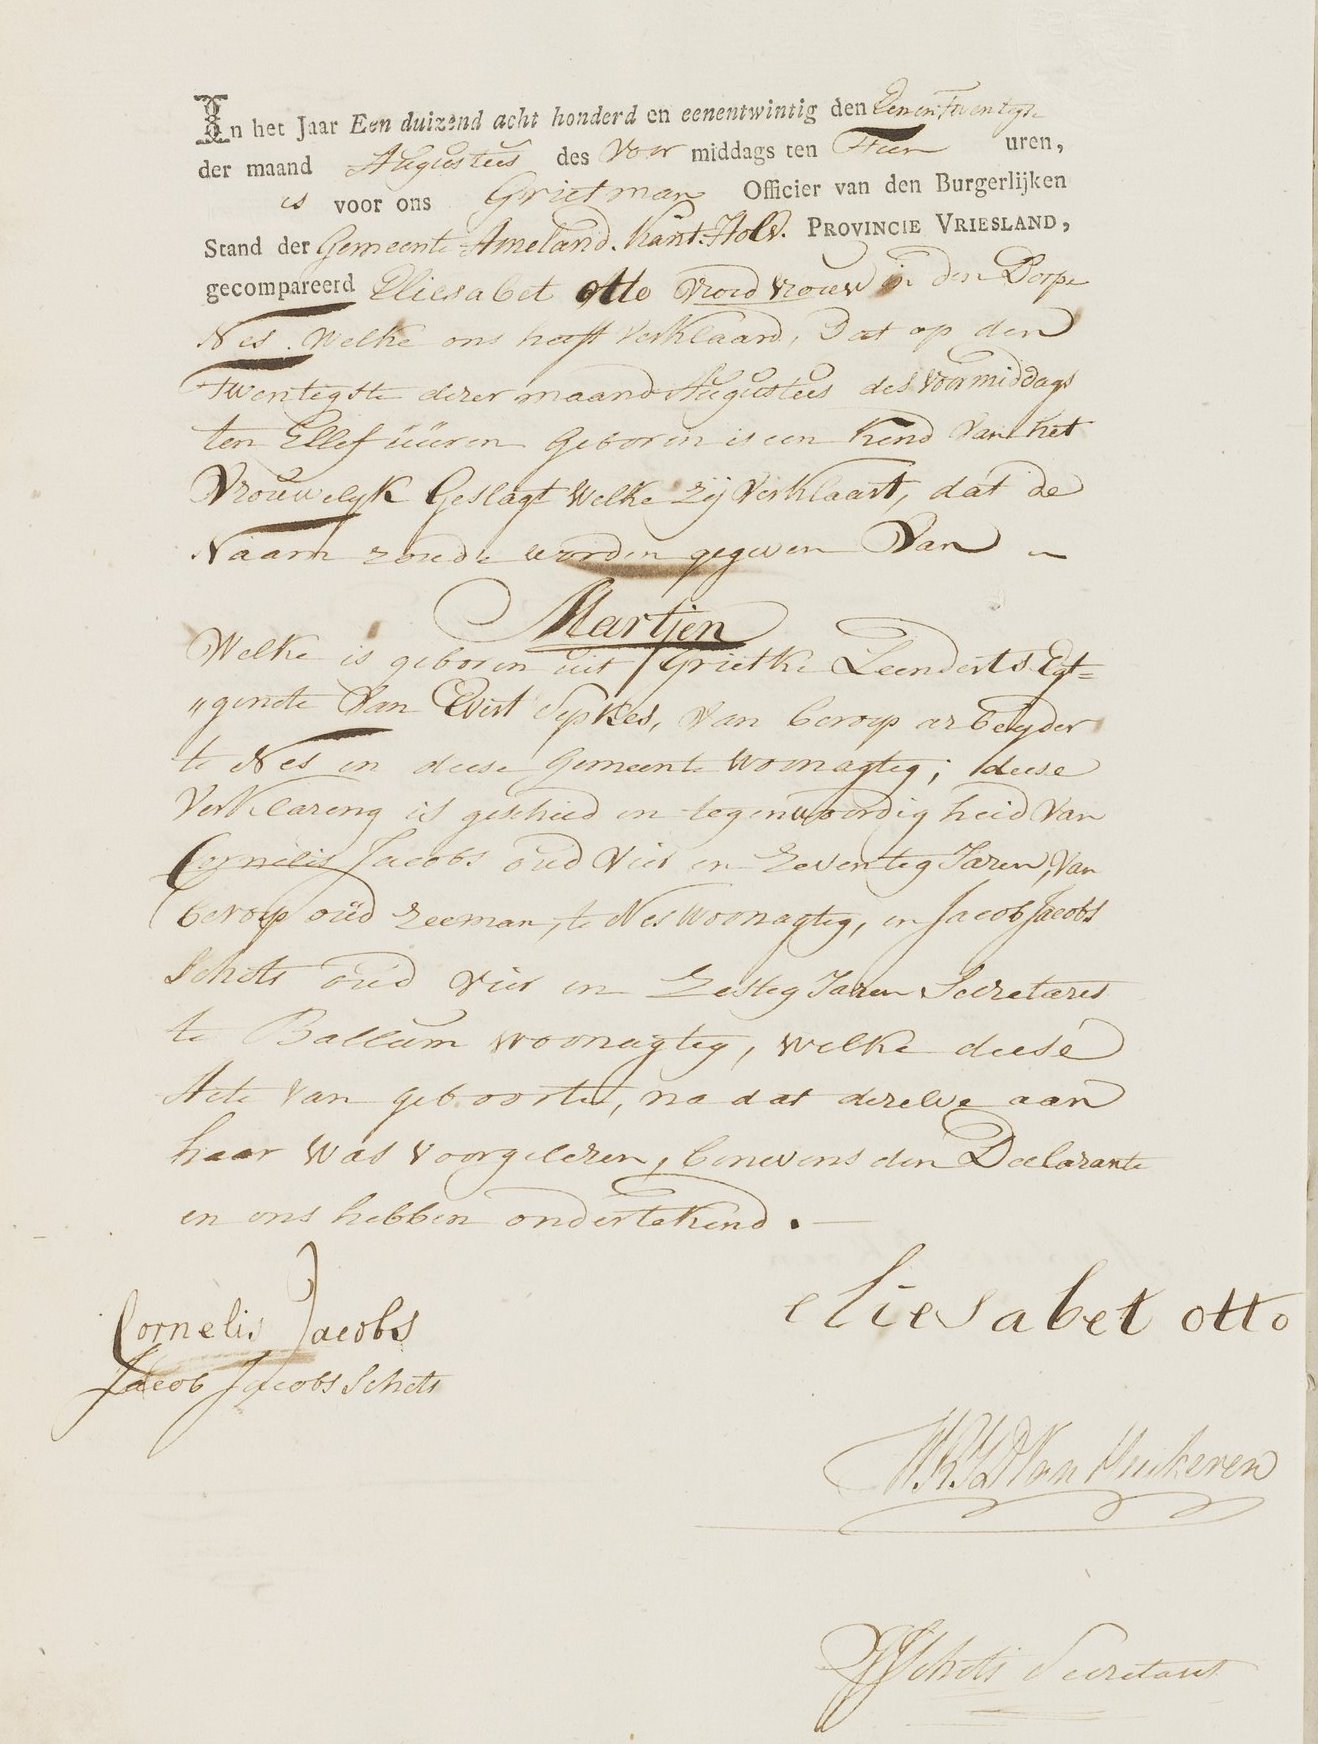 In het Jaar Een duizend acht honderd en eenentwintig den Eenentwentigs
der maand Augustus des Voor middags ten Tien uren,
is voor ons Grietman Officier van den Burgerlijken
Stand der Gemeente Ameland. Kant. Holw. PROVINCIE VRIESLAND,
gecompareerd Eliesabet Otto Vroed vrouw in den Dorpe
Nes. Welke ons heeft verklaard, Dat op den
Twentegste dezer maand Augustus des voormiddags
ten Ellef uuren geboren is een Kend van het
Vrouwelyk Geslagt Welke zij verklaart, dat de
Naam zoude worden gegeven Van
Martjen
Welke is geboren uit Grietke Leenderts Egt=
"genote Van Evert Sipkes, van beroep arbeyder
te Nes in deese gemeente woonagteg; deese
Verklareng is geschied in tegenwoordigheid van
Cornelis Jacobs oud vier en zeventeg Jaren, van
beroep oud zeeman, te Nes woonagteg, en Jacob Jacobs
Schots oud vier en zesteg Jaren Secretares
te Ballum woonagteg, welke deese
Acte van geboorte, na dat dezelve aan
haar was voorgelezen, benevens den Declarante
en ons hebben ondertekend.
Cornelis Jacobs
Jacob Jacobs Schots
eliesabet otto
Van Heeckeren
JJ Schots Secretaris